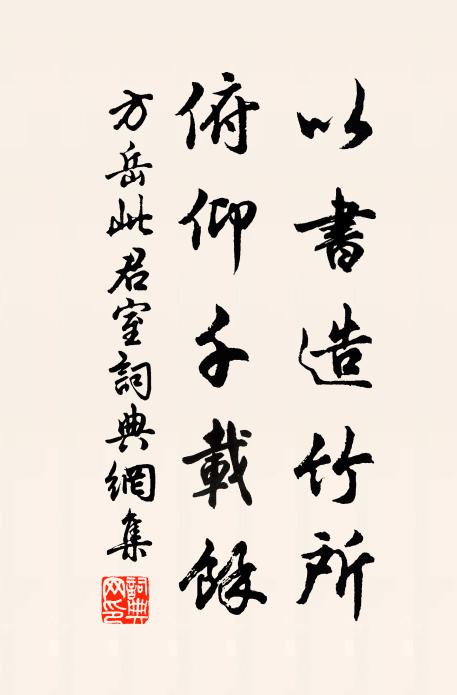 以書造竹所
俯仰千載餘
方岳此君室詞典網集
詞典网印